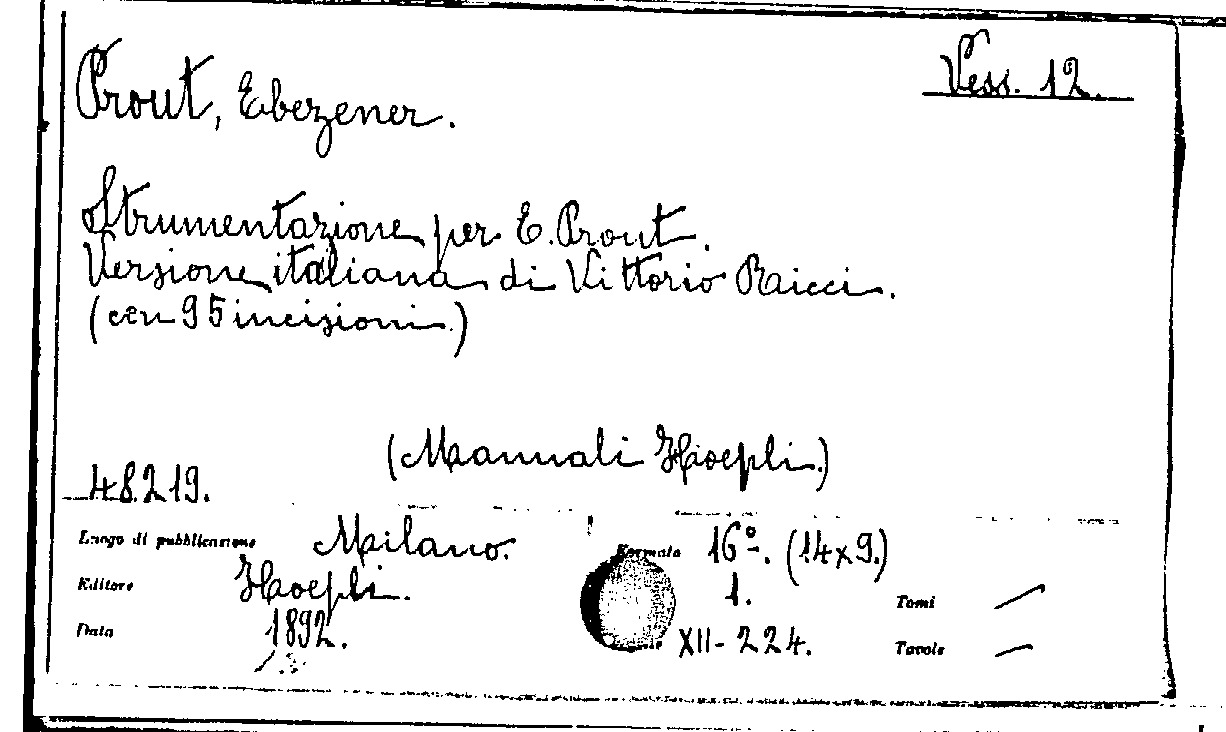 Prout, Ebezener.
Vess. 12.
Strumentazione per E. Prout.
Versione italiana di Vittorio Ricci.
(con 95 incisioni.)
(Manuali Hoepli.)
48219.
Luogo di pubblicazione Milano. Formato 16º. (14x9.)
Editore Hoepli. 1. Tomi —
Data 1892. XII-224. Tavole —